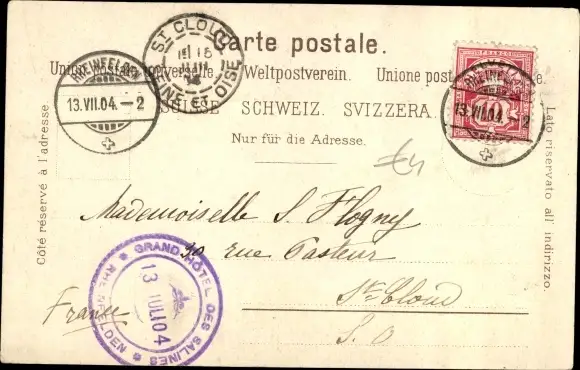 Carte postale.
Union postale universelle. Weltpostverein. Unione postale
SUISSE SCHWEIZ. SVIZZERA.
Nur für die Adresse.
RHEINFELDEN
13.VII.04.-2
ST CLOUD
SEINE ET OISE
RHEINFELDEN
13.VII.04.-2
HELVETIA
10
Côté réservé à l'adresse
Lato riservato all' indirizzo.
Mademoiselle S. Flogny
30 rue Pasteur
St Cloud
S. O
France
GRAND HOTEL DES SALINES
RHEINFELDEN
13 JUL 04